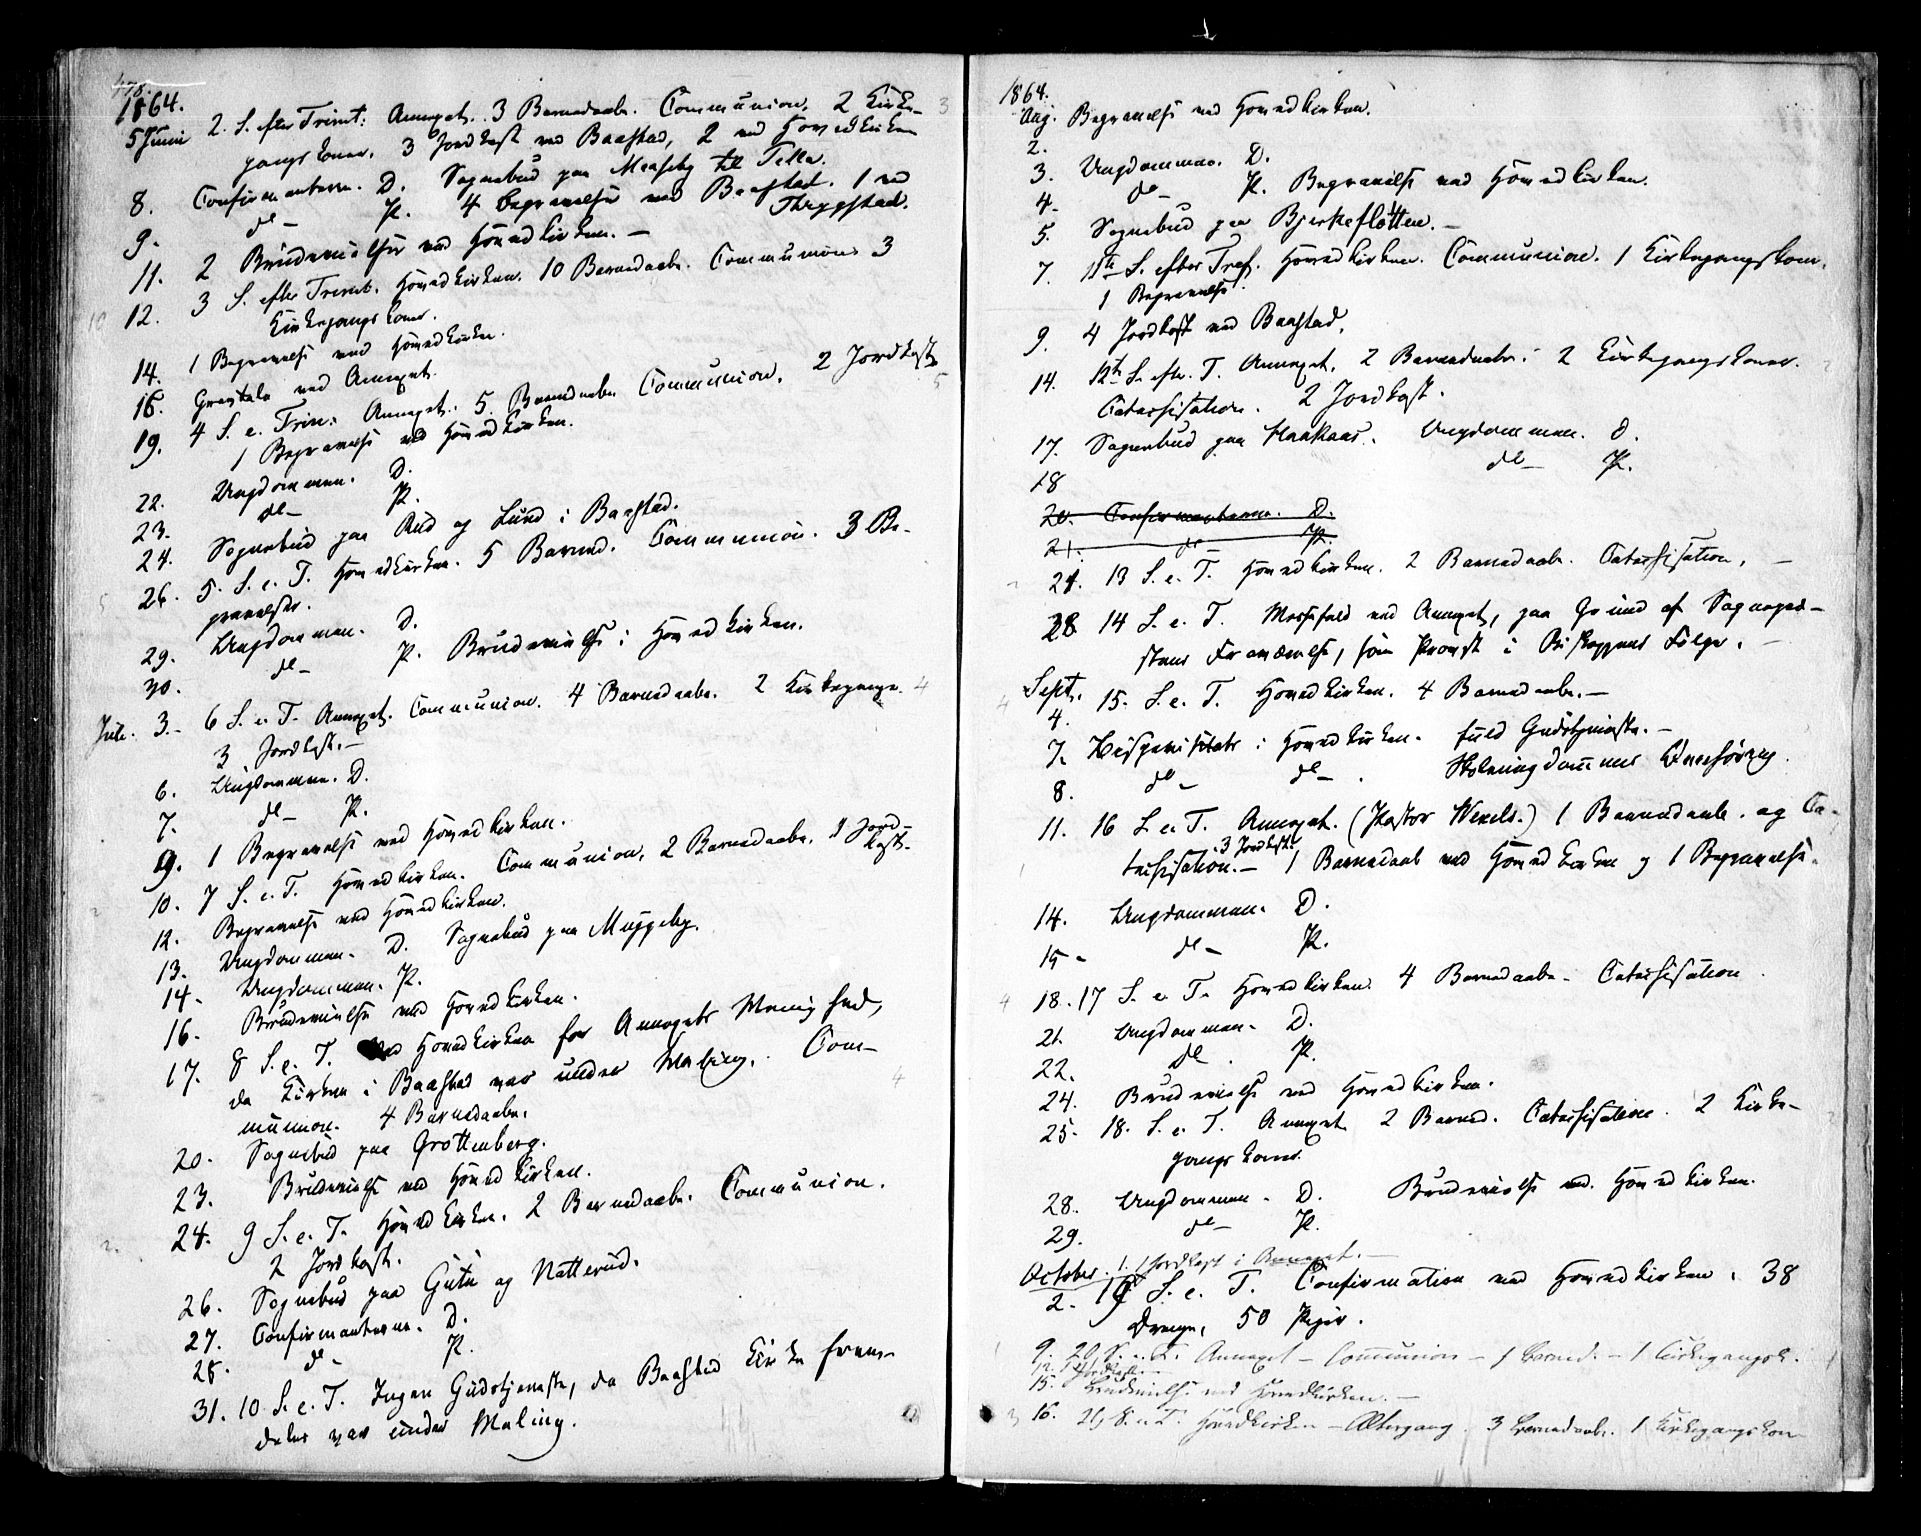 1864.
5 Juni 2. S. efter Trinit. Annexet. 3 Barnedaab. Communion. 2 Kirke-
gangskoner. 3 Jordkast ved Baastad, 2 ved Hovedkirken
8. Confirmanterne. D. Sognebud paa til
9. do P. 4 Begravelser ved Baastad. 1 ved
Thrygstad.
11. 2 Brudevielser ved Hovedkirken. —
12. 3 S. efter Trinit. Hovedkirken. 10 Barnedaab. Communion 3
Kirkegangskoner.
14. 1 Begravelse ved Hovedkirken.
16. ved Annexet.
19. 4 S. e. Trin. Annexet. 5 Barnedaab. Communion. 2 Jordkast
1 Begravelse ved Hovedkirken.
22. Ungdommen. D.
23. do P.
24. Sognebud paa Rud og Lund i Baastad.
26. 5. S. e. T. Hovedkirken. 5 Barned. Communion. 3 Be-
gravelser.
29. Ungdommen. D.
30. do P. Brudevielse i Hovedkirken.
Juli. 3. 6 S. e. T. Annexet. Communion. 4 Barnedaab. 2 Kirkegange.
3 Jordkast. —
6. Ungdommen. D.
7. do P.
9. 1 Begravelse ved Hovedkirken.
10. 7 S. e. T. Hovedkirken. Communion. 2 Barnedaab. 1 Jord-
kast.
12. Begravelse ved Hovedkirken.
13. Ungdommen. D. Sognebud paa
14. Ungdommen. P.
16. Brudevielse ved Hovedkirken.
17. 8 S. e. T. Ved Hovedkirken for Annexets Menighed,
da Kirken i Baastad var under Maling. Com-
munion. 4 Barnedaab.
20. Sognebud paa Grottenberg.
23. Brudevielse ved Hovedkirken.
24. 9 S. e. T. Hovedkirken. 2 Barnedaab. Communion.
2 Jordkast.
26. Sognebud paa og Natterud.
27. Confirmanterne. D.
28. do P.
31. 10. S. e. T. Ingen Gudstjeneste, da Baastad Kirke frem-
deles var under Maling.
1864.
Aug. Begravelse ved Hovedkirken.
2.
3. Ungdommen. D.
4. do P. Begravelse ved Hovedkirken.
5. Sognebud paa Bjerkefløtten. —
7. 11te S. efter Tref. Hovedkirken. Communion. 1 Kirkegangskone.
1 Begravelse.
9. 4 Jordkast ved Baastad.
14. 12te S. efter T. Annexet. 2 Barnedaab. 2 Kirkegangskoner.
Catechisation. 2 Jordkast.
17. Sognebud paa Haakaas. Ungdommen. D.
18 do P.
20. Confirmanterne. D.
21. do P.
21. 13 S. e. T. Hovedkirken. 2 Barnedaab. Catechisation. —
28 14 S. e. T. Messefald ved Annexet, paa Grund af Sognepræ-
stens Fraværelse, som Provst i Biskoppens Følge. —
Sept. 4. 15. S. e. T. Hovedkirken. 4 Barnedaab. —
7. i Hovedkirken. fuld Gudstjeneste. —
8. do do
11. 16 S. e. T. Annexet. (Pastor Wexels.) 1 Barnedaab. og Ca-
techisation. — 3 Jordkast 1 Barnedaab ved Hovedkirken og 1 Begravelse.
14. Ungdommen. D.
15 do P.
18. 17 S. e. T. Hovedkirken. 4 Barnedaab. Catechisation.
21. Ungdommen. D.
22. do P.
24. Brudevielse ved Hovedkirken.
25. 18. S. e. T. Annexet 2 Barned. Catechisation. 2 Kirke-
gangskoner.
28. Ungdommen. D. Brudevielse ved Hovedkirken.
29. do P.
October. 1. 1 Jordkast i Annexet. —
2. 19 S. e. T. Confirmation ved Hovedkirken. 38
Drenge, 50 Piger.
9. 20 S. e. T. Annexet — Communion — 1 Barned. — 1 Kirkegangsk.
12. 1 Jordkast. —
15. Brudevielse ved Hovedkirken. —
16. 21 S. e. T. Hovedkirken — Altergang. 3 Barnedaab. 1 Kirkegangskon